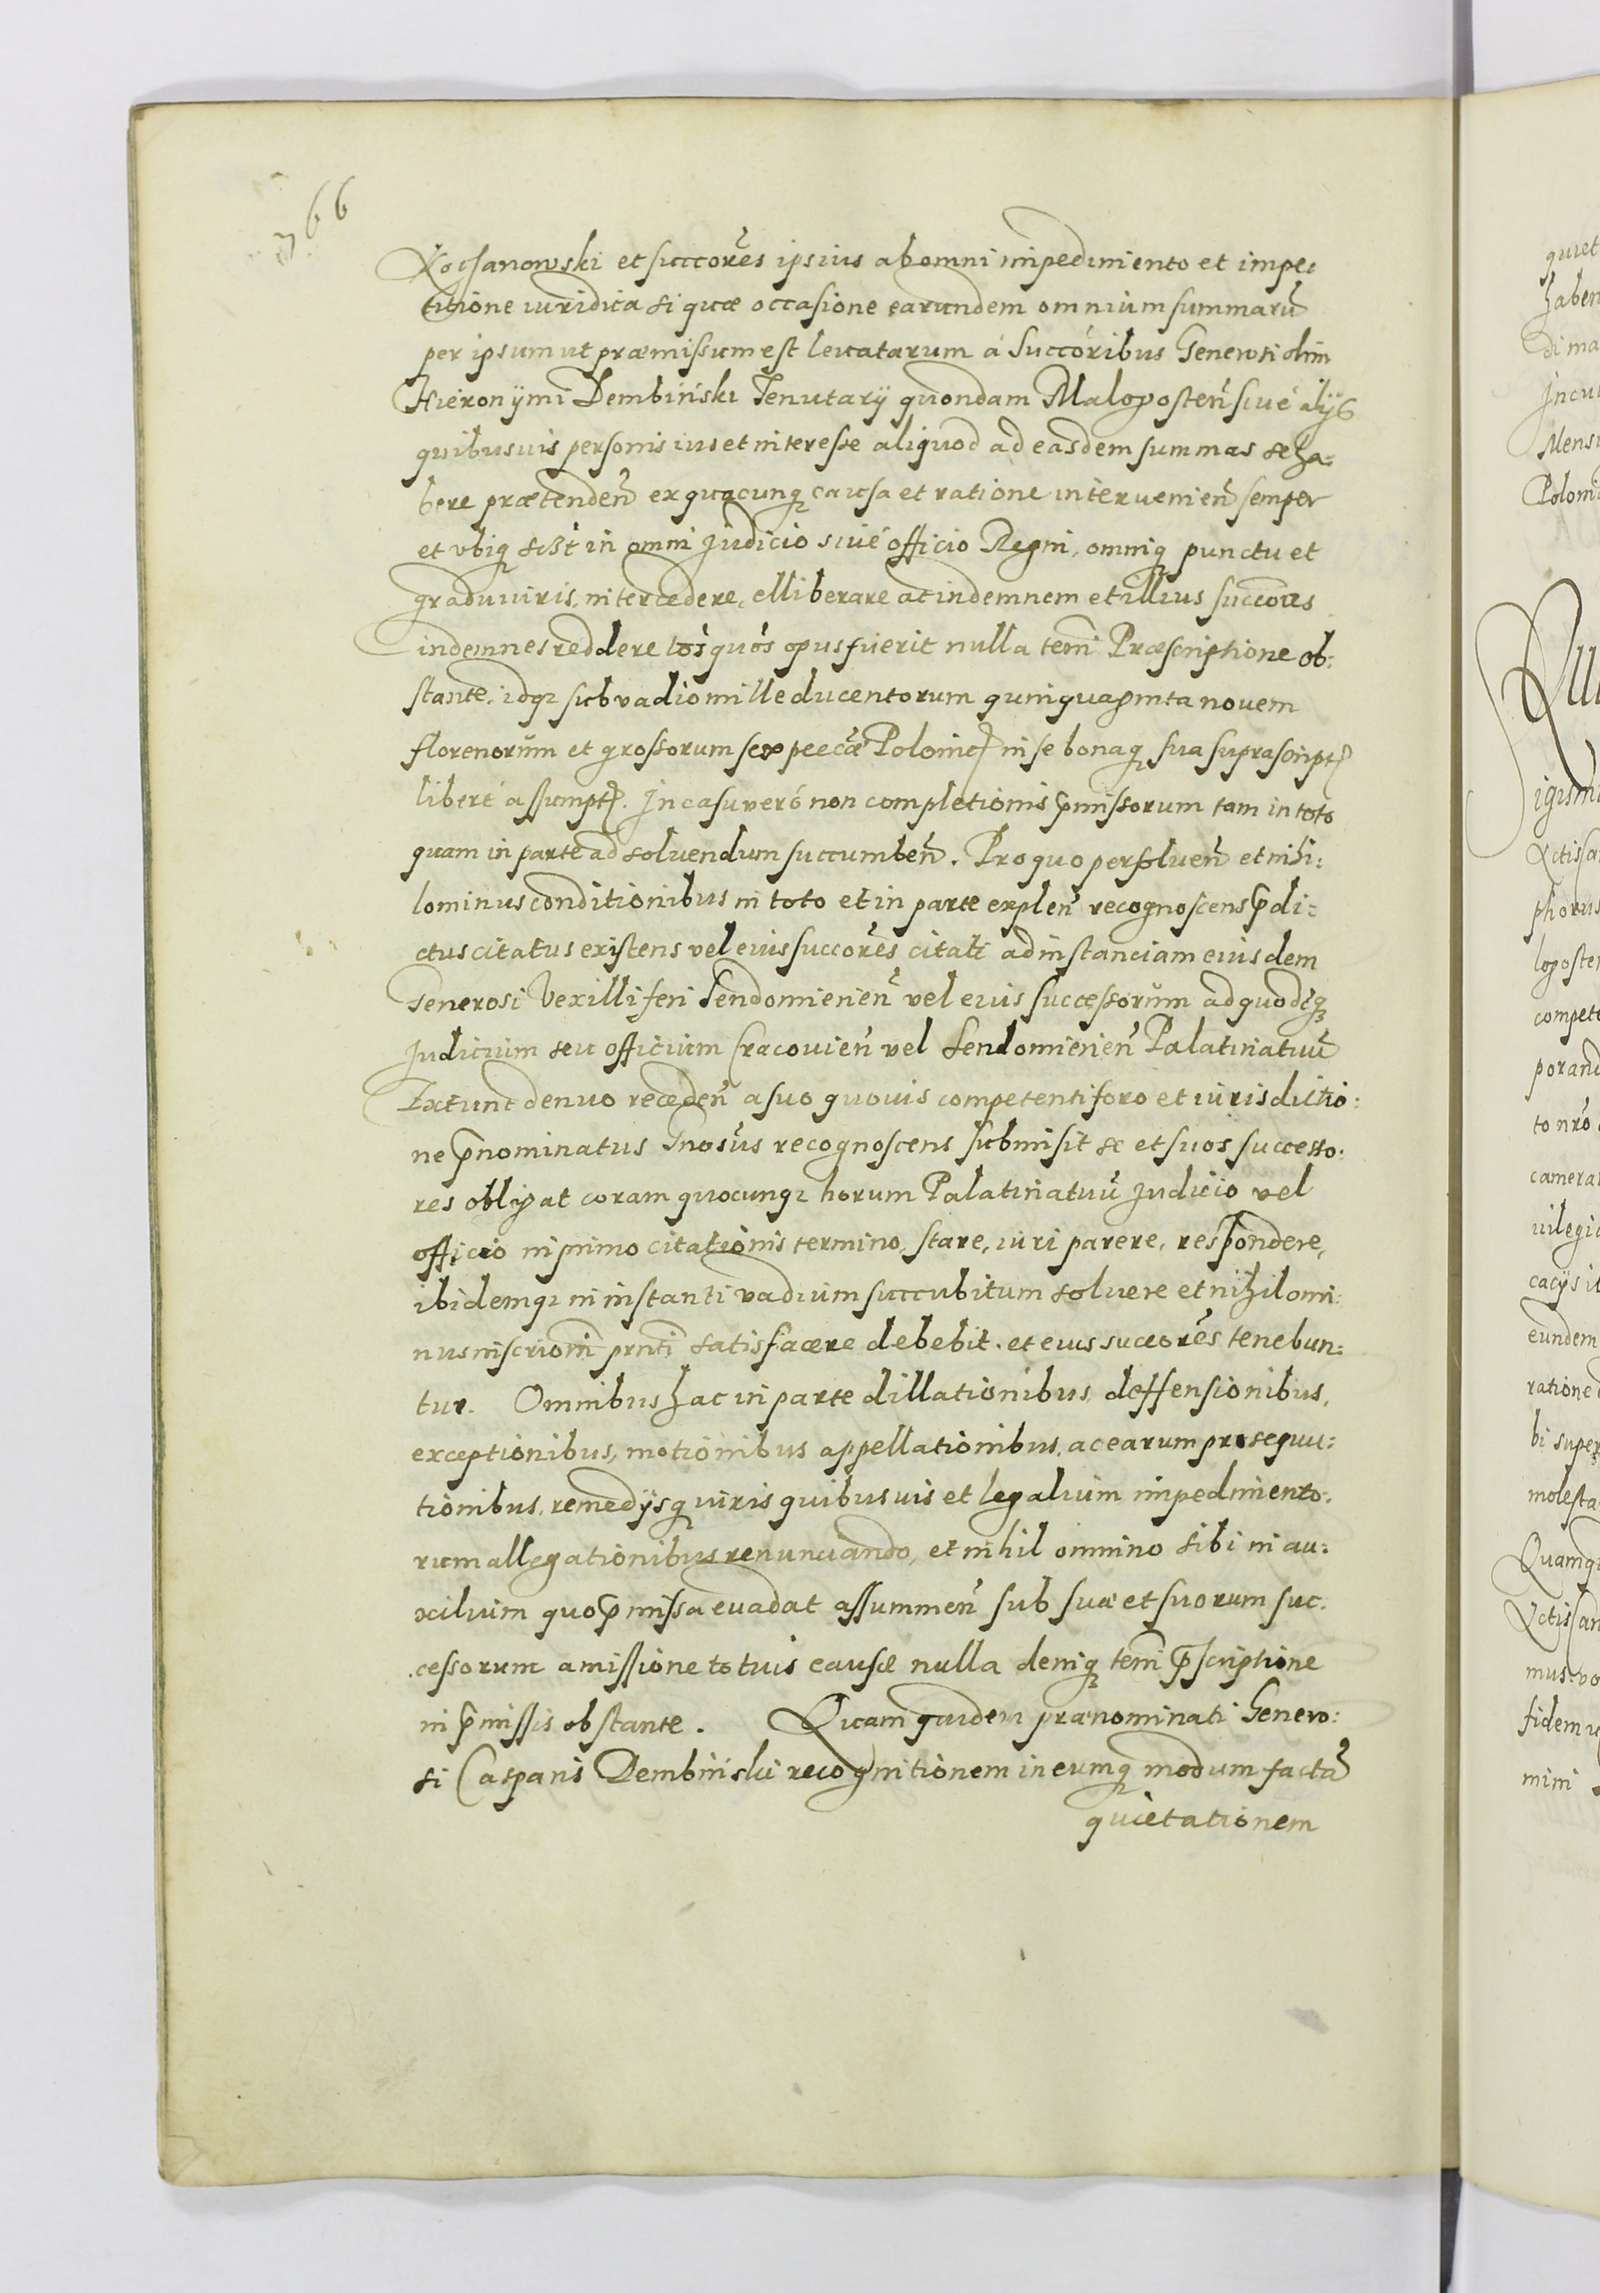 766
Kochanowski et succores ipsius ab omni impedimento et impe:
titione iuridica si quæ occasione earundem omnium summarũ
per ipsum ut præmissum est leuatarum á Succóribus Generosi olim
Hieronÿmi Dembiński Tenutarÿ quondam Malogosteñ siué alÿs
quibusuis personis ius et interesse aliquod ad easdem summas se ha:
bere prætendeñ ex quacunq causa et ratione interuenieñ semper
et vbiq in omni judicio siué officio Regni, omniq punctu et
gradu iuris, intercedere, elliberare ac indemnem et illius succores
indemnes reddere tós quós opus fuerit nulla tem̄ Præscriptione ob:
stante. idqz sub vadio mille ducentorum quinquaginta novem
florenorum et grossorum sex pecuæ Polonic in se bonaq sua suprascript
liberé assumpt. In casu veró non completionis p̄missorum tam in toto
quam in parte ad soluendum succumbeñ. Pro quo persolueñ et nihi:
lominus conditionibus in toto et in parte expleñ recognoscens p̄di:
ctus citatus existens vel eius succores citati ad instanciam eiusdem
Generosi Vexilliferi Sendomirieñ vel eius successorum ad quodcq
Judicium seu officium Cracouieñ vel Sendomirieñ Palatinatuũ
Extunc denuo recedeñ a suo quouis competenti foro et iurisdictio:
ne p̄nominatus Gnosus recognoscens submisit se et suos successo:
res obligat coram quocunqz horum Palatinatuũ judicio vel
officio in primo citationis termino, stare, iuri parere, respondere,
ibidemqz in instanti vadium succubitum soluere et nihilomi:
nus inscriom̄ prnti satisfacere debebit. et eius succores tenebun:
tur. Omnibus hac in parte dillationibus, deffensionibus,
exceptionibus, motionibus appellationibus, ac earum prosequu:
tionibus, remedÿsq iuris quibusuis et legalium impedimento:
rum allegationibus renunciando, et nihil omnino sibi in au:
xilium quo p̄missa euadat assummeñ sub suæ et suorum suc:
cessorum amissione totius causæ nulla deniq tem̄ p̄scriptione
in p̄missis obstante. Quam quidem prænominati Genero:
si Caspari Dembiński recognitionem in eumq modum factã
quietationem